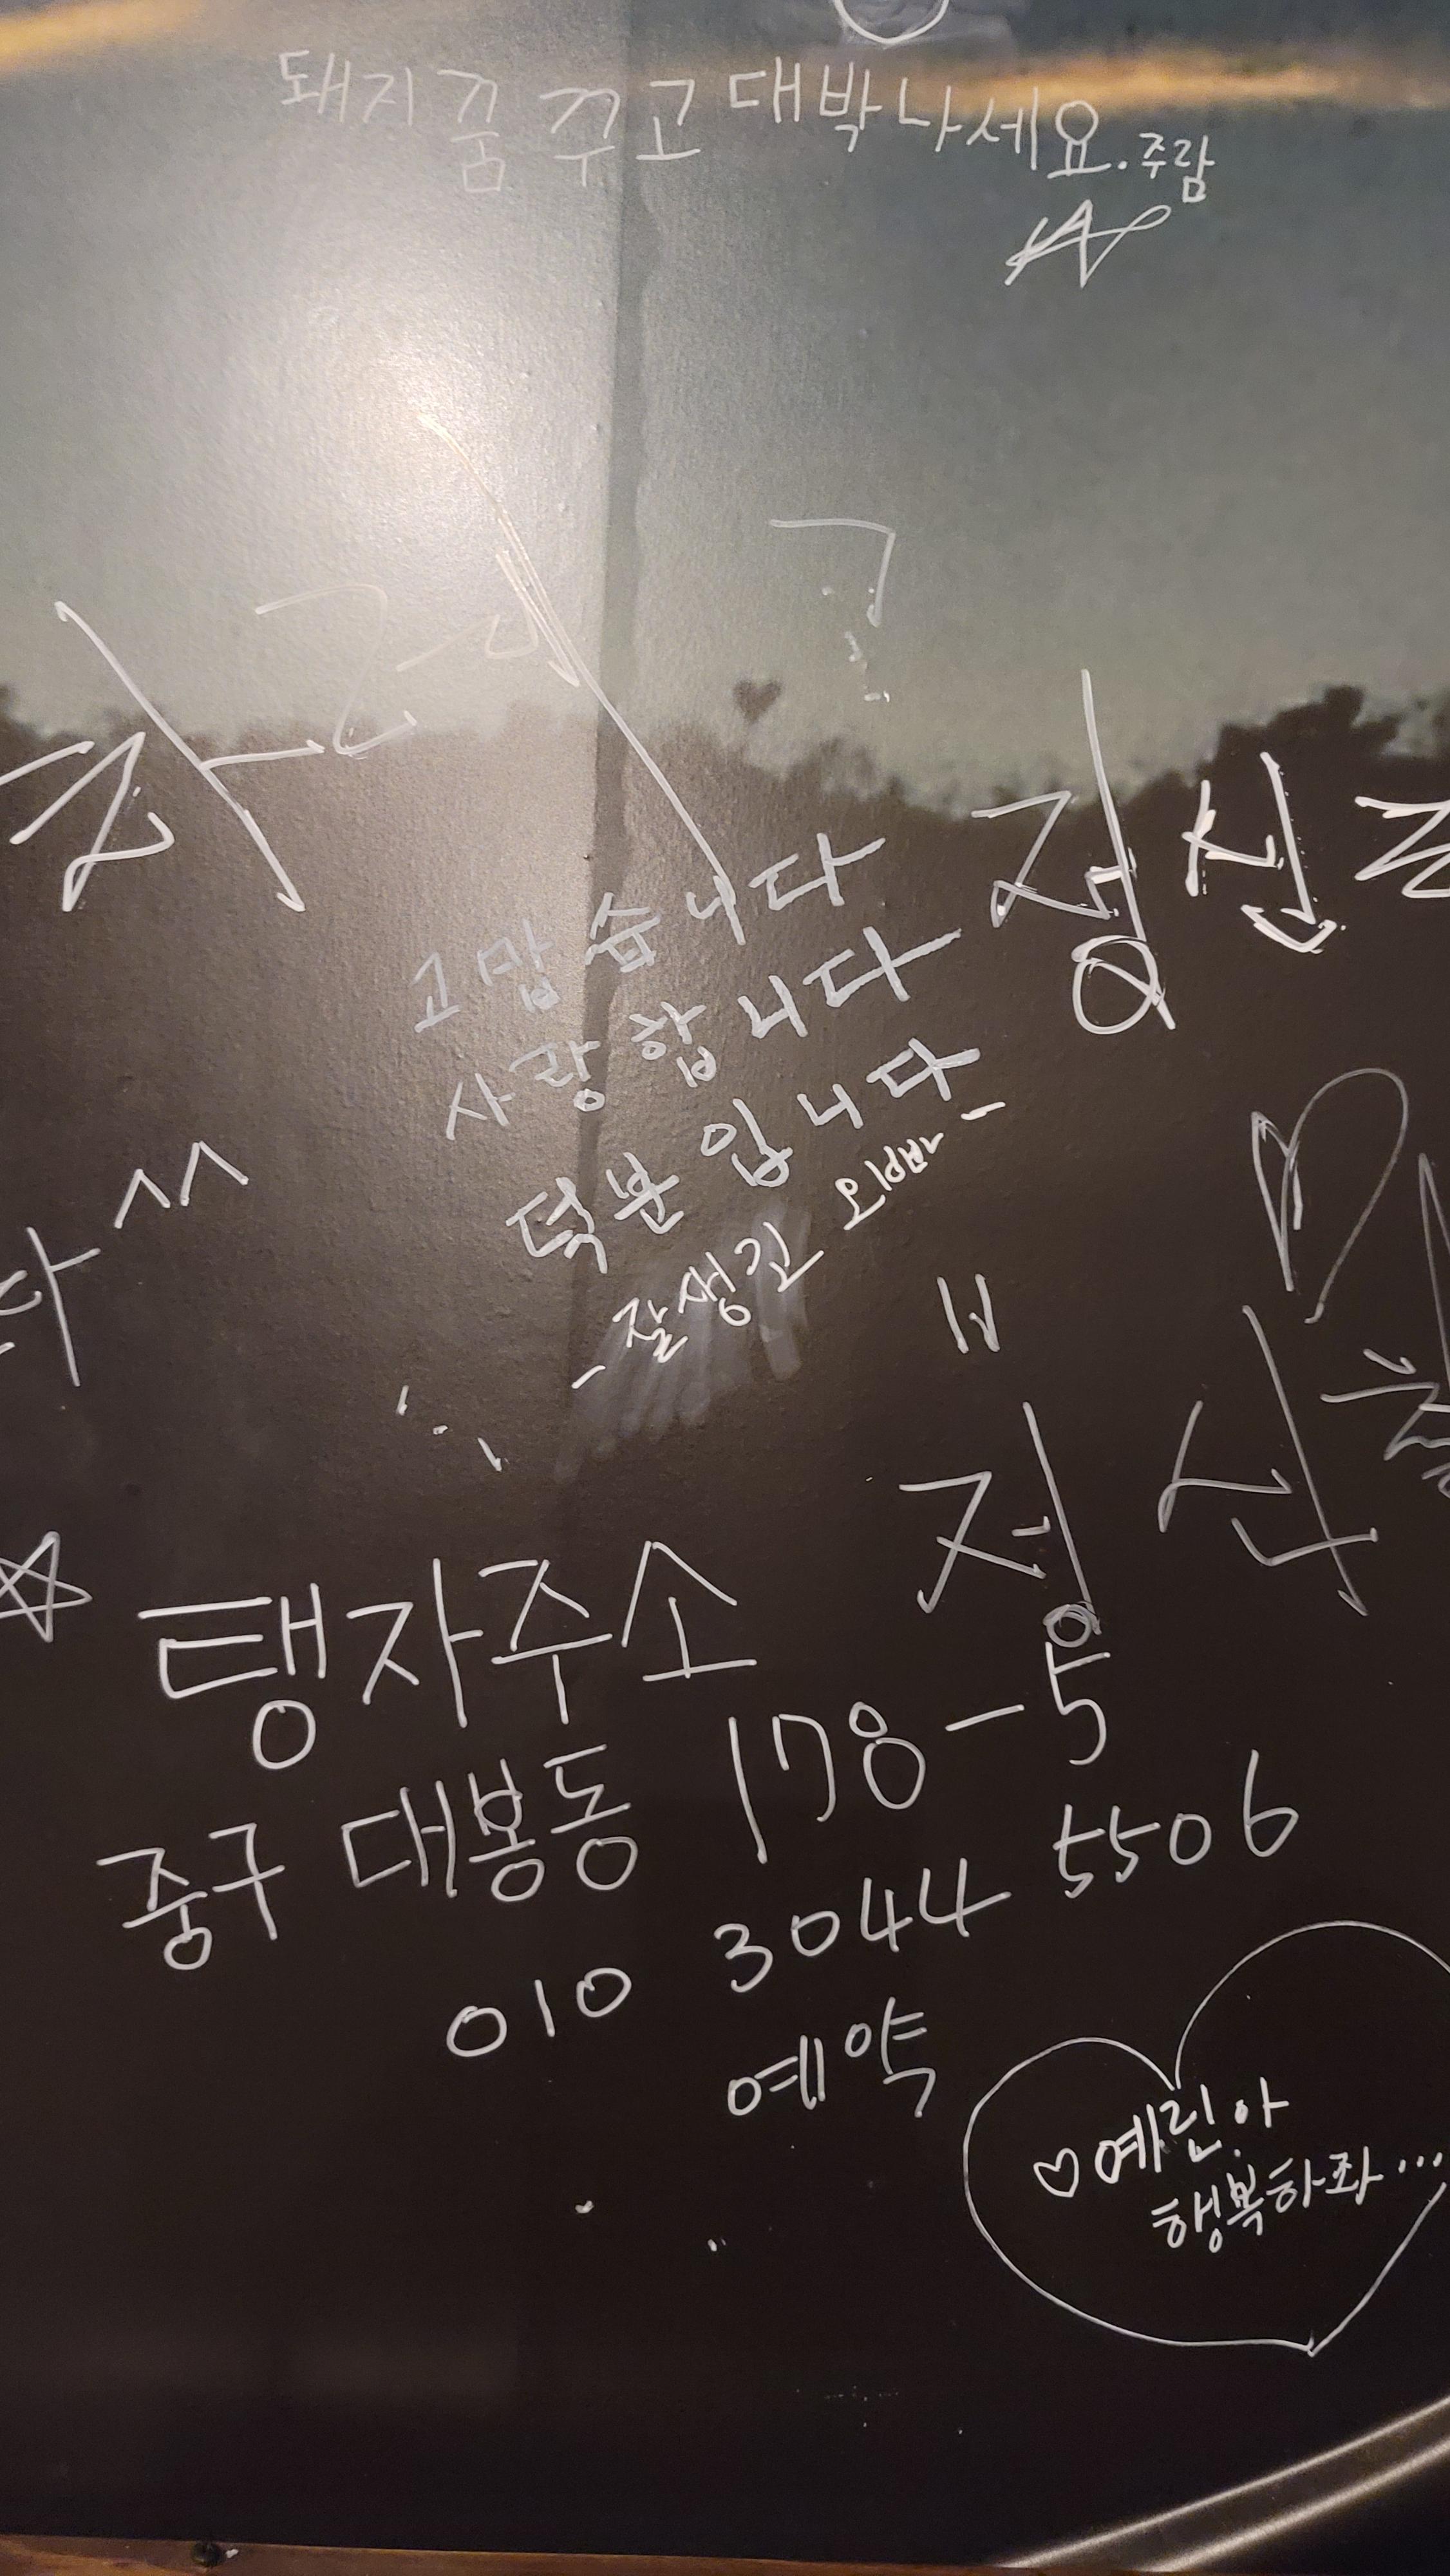 돼지꿈 꾸고 대박나세요. 주람
고맙습니다
사랑합니다
덕분입니다
- 잘생긴 오빠 -
정신
다 ^^
정신
탱자주소
중구 대봉동 178-5
010 3044 5506
예약
♡예린아
행복하좌...